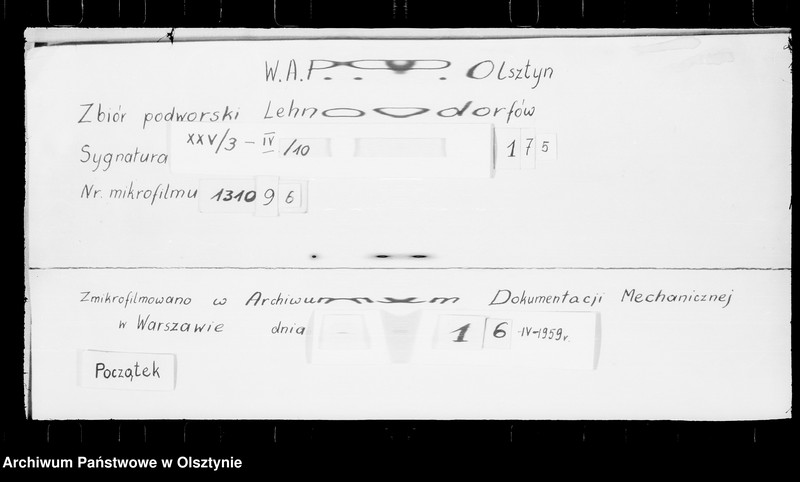 W.A.P. Olsztyn
Zbiór podworski Lehndorfów
Sygnatura XXV/3 - IV /10 175
Nr. mikrofilmu 131096
Zmikrofilmowano w Archiwum Dokumentacji Mechanicznej
w Warszawie dnia 16-IV-1959r.
Początek
Archiwum Państwowe w Olsztynie